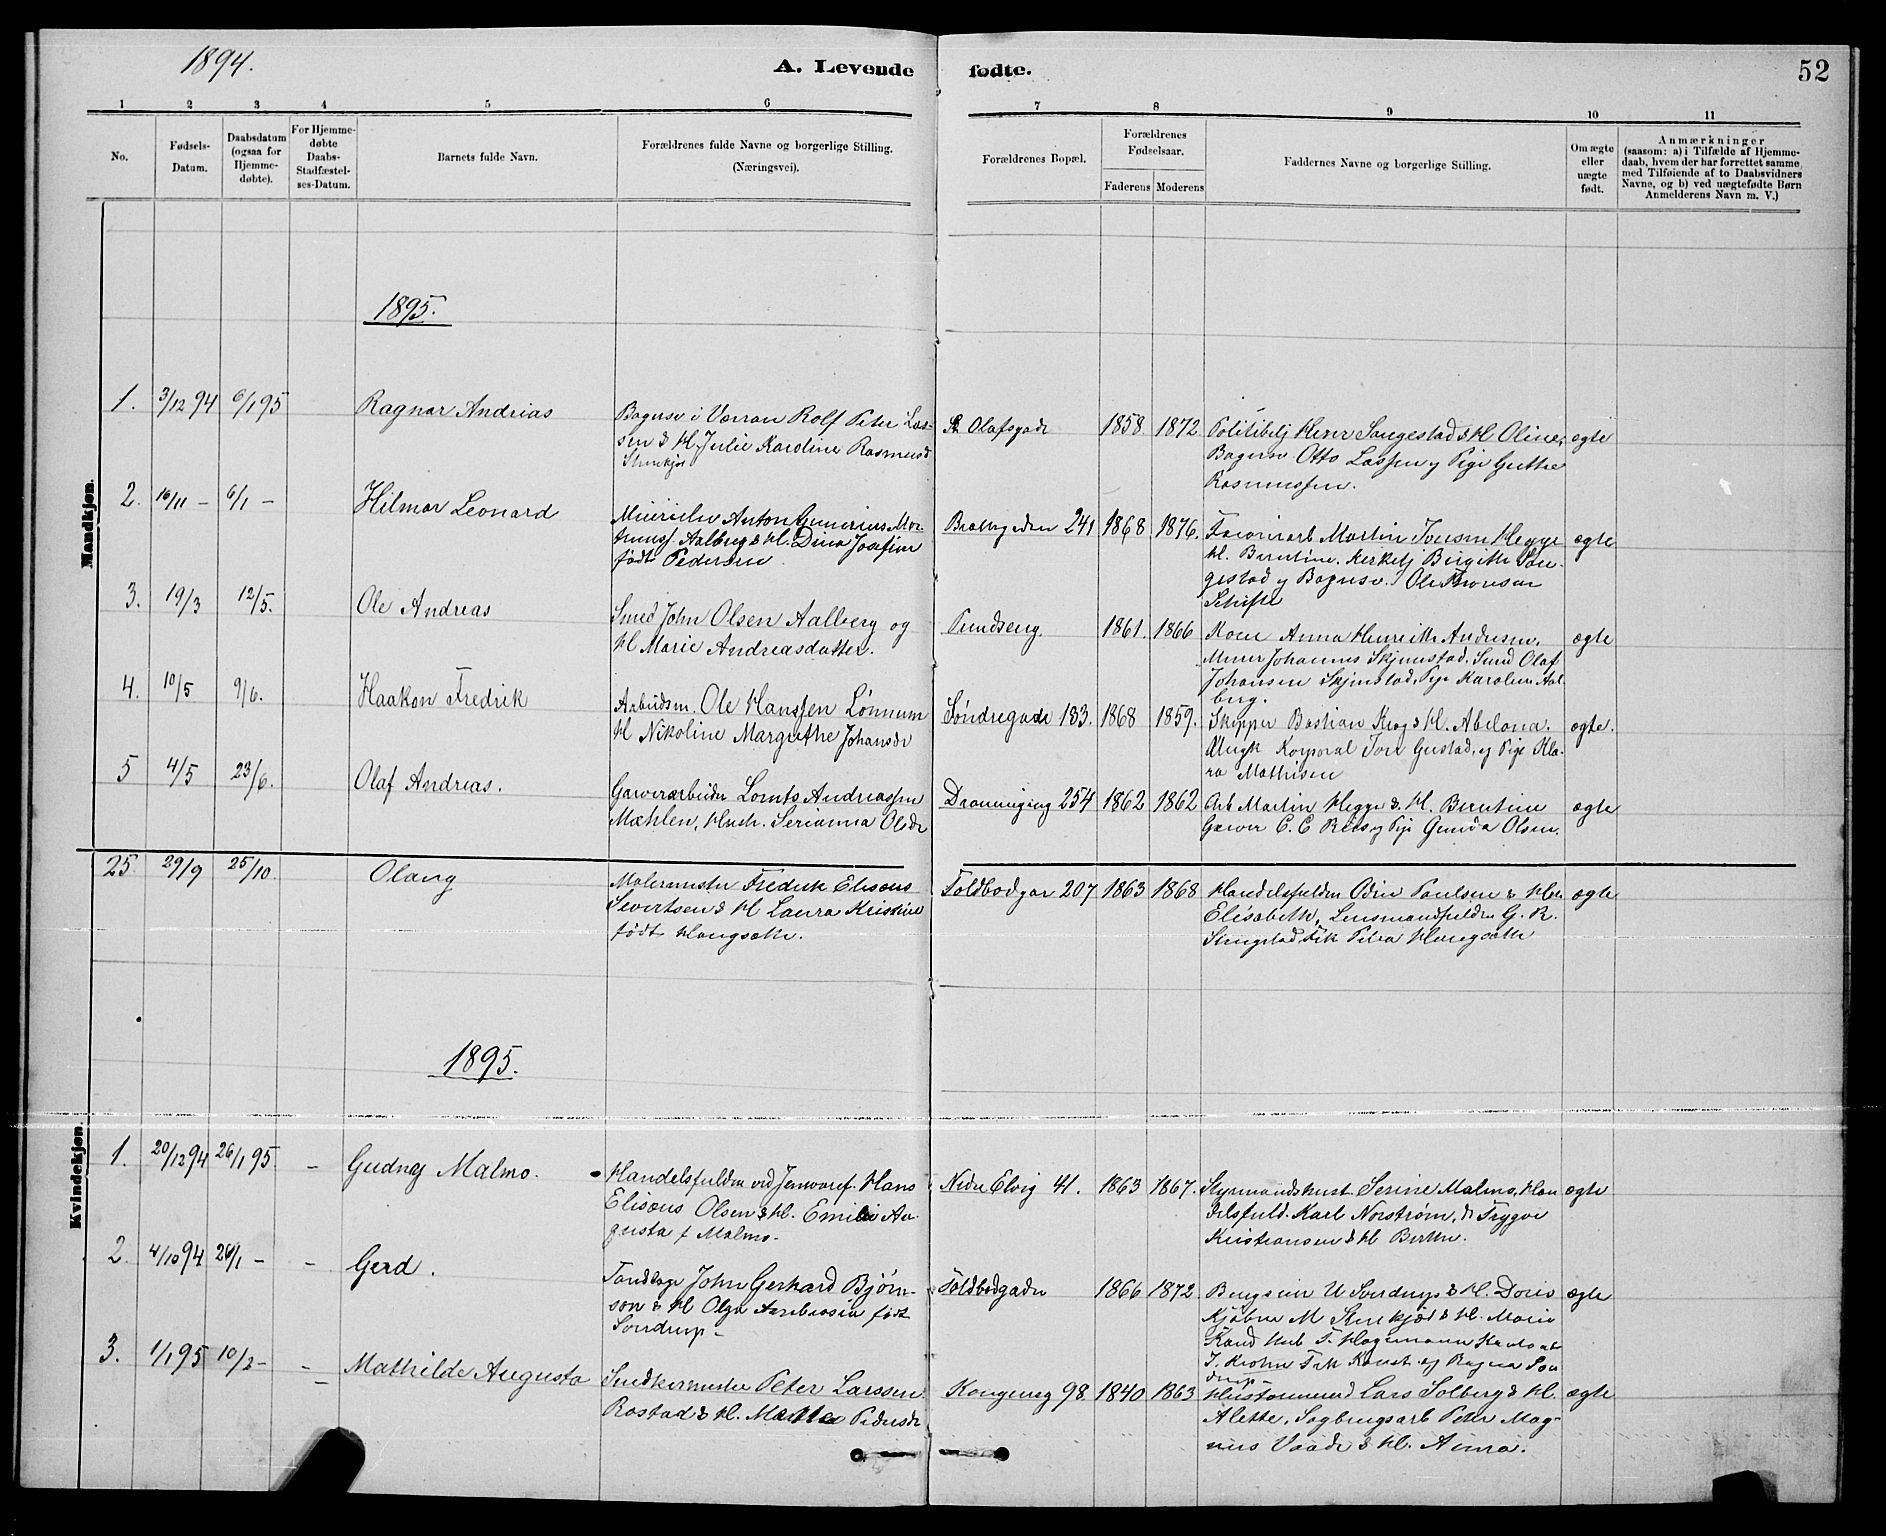 1894.
A. Levende fødte.
52
1 2 3 4 5 6 7 8 9 10 11
No.
Fødsels-Datum.
Daabsdatum (ogsaa for Hjemme-døbte).
For Hjemme-døbte Daabs-Stadfæstel-ses-Datum.
Barnets fulde Navn.
Forældrenes fulde Navne og borgerlige Stilling. (Næringsvei).
Forældrenes Bopæl.
Forældrenes Fødselsaar.
Faderens Moderens
Faddernes Navne og borgerlige Stilling.
Om ægte eller uægte født.
Anmærkninger
(saasom: a) i Tilfælde af Hjemme-
daab, hvem der har forrettet samme,
med Tilføiende af to Daabsvidners
Navne, og b) ved uægtefødte Børn
Anmelderens Navn m. V.)
Mandkjøn.
1895.
1. 3/12 94 6/1 95 Ragnar Andrias
Bagersv i Værran Rolf Peter Las-
sen & H. Julie Karoline Rasmusd
Olafsgade 1858 1872
Otto Lassen og Pige
Rasmussen.
ægte
2. 16/11 – 6/1 – Hilmar Leonard
Anton Gunerius Mor
Aalberg & H. Dina Josefine
født Pedersen
241 1868 1876.
Martin Hegge
H. Berntine. Birgitte San-
gestad og Bagersv. Ole Thoresen
Schifte
ægte
3. 19/3 12/5. Ole Andreas
Smed John Olsen Aalberg og
H Marie Andreasdatter.
1861. 1866
Anna Henriette Andresen,
Murer Johannes Skjenstad, Smed Olaf
Johansen Skjenstad, Pige Karoline Aal-
berg.
ægte
4. 10/5 9/6. Haakon Fredrik
Arbeidsm. Ole Hanssen Lønnum
H Nikoline Margrethe Johansdr
Søndregade 183. 1868 1859.
Skipper Bastian Krog & H. Abelona.
Korporal Gustad, og Pige Kla-
ra Mathisen
ægte.
5 4/5 23/6. Olaf Andreas.
Garverarbeider Lornts Andreassen
Mæhlen, Hustr. Serianna Olsdr
254 1862 1862
Arb Martin Hegge & H. Berntine
Garver C. C. og Pige Gunda Olsen.
ægte
25 29/9 25/10 Olaug
Malermester Fredrik Elisæus
Sivertsen & H Laura Kristine
født Haugsætte.
Toldbodgar 207 1863 1868
Handelsfuldm Odin Paulsen &
Elisabeth, Lensmandsfuldm G. R.
Frk Petra Haugsætte
ægte
1895.
Kvindekjøn.
1. 20/12 94 26/1 95 – Gudny Malmo.
Handelsfuldm ved Jernvaref. Hans
Elisæus Olsen & H. Emilie Au-
gusta f Malmo.
Nedre Elvig 41. 1863 1867.
Styrmandshust. Serine Malmo, Han
delsfuld. Karl Norstrøm, Trygve
Kristiansen & H Berthe.
ægte
2. 4/10 94 26/1 – – Gerd.
Tandlæge John Gerhard Bjørn-
son & H Olga Ambrosia født
Sverdrup –
Toldbodgaden 1866 1872
U Sverdrup & H. Doris
Kjøbm M & H. Marie
Kand T. Hagemann
J. Krohn Frk og Ragna Sver
drup –
ægte
3. 1/1 95 10/2 – – Mathilde Augusta
Snedkermester Peter Larssen
Rostad & H. Pedersdr
Kongensg 98. 1840 1863
Lars Solberg & H.
Alette, Sagbrugsarb Peter Mag-
nus Vaade & H. Anna.
ægte